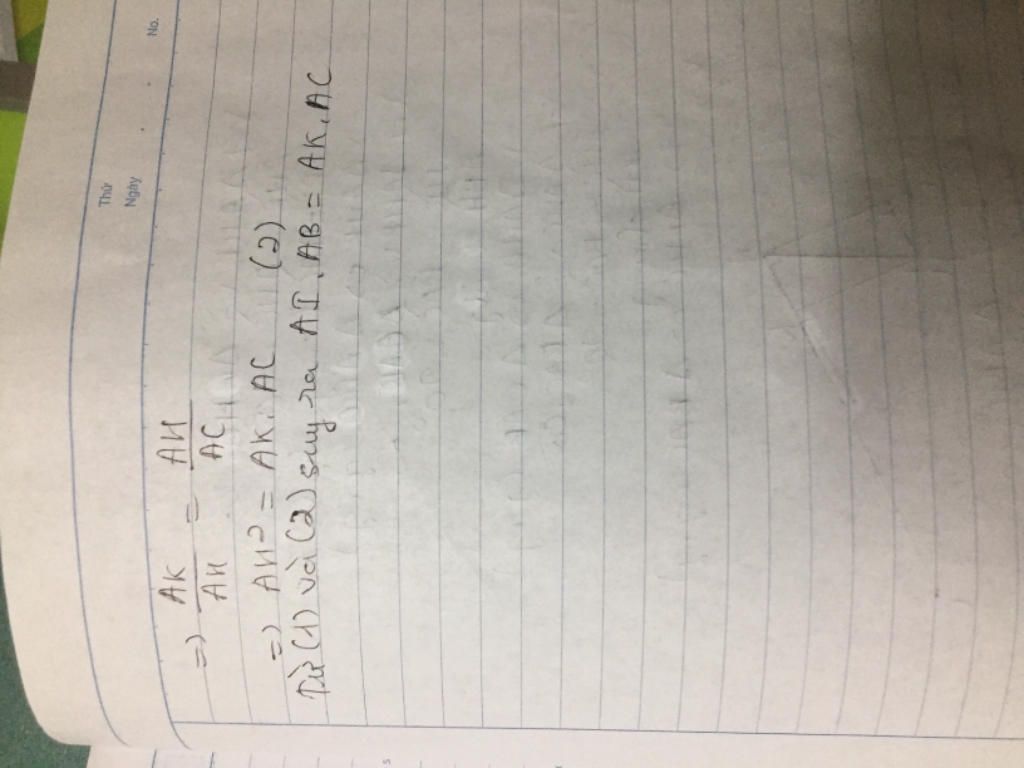 Thứ
Ngày
No.
=> AK/AH = AH/AC
=> AH² = AK. AC (2)
Từ (1) và (2) suy ra AI. AB = AK. AC